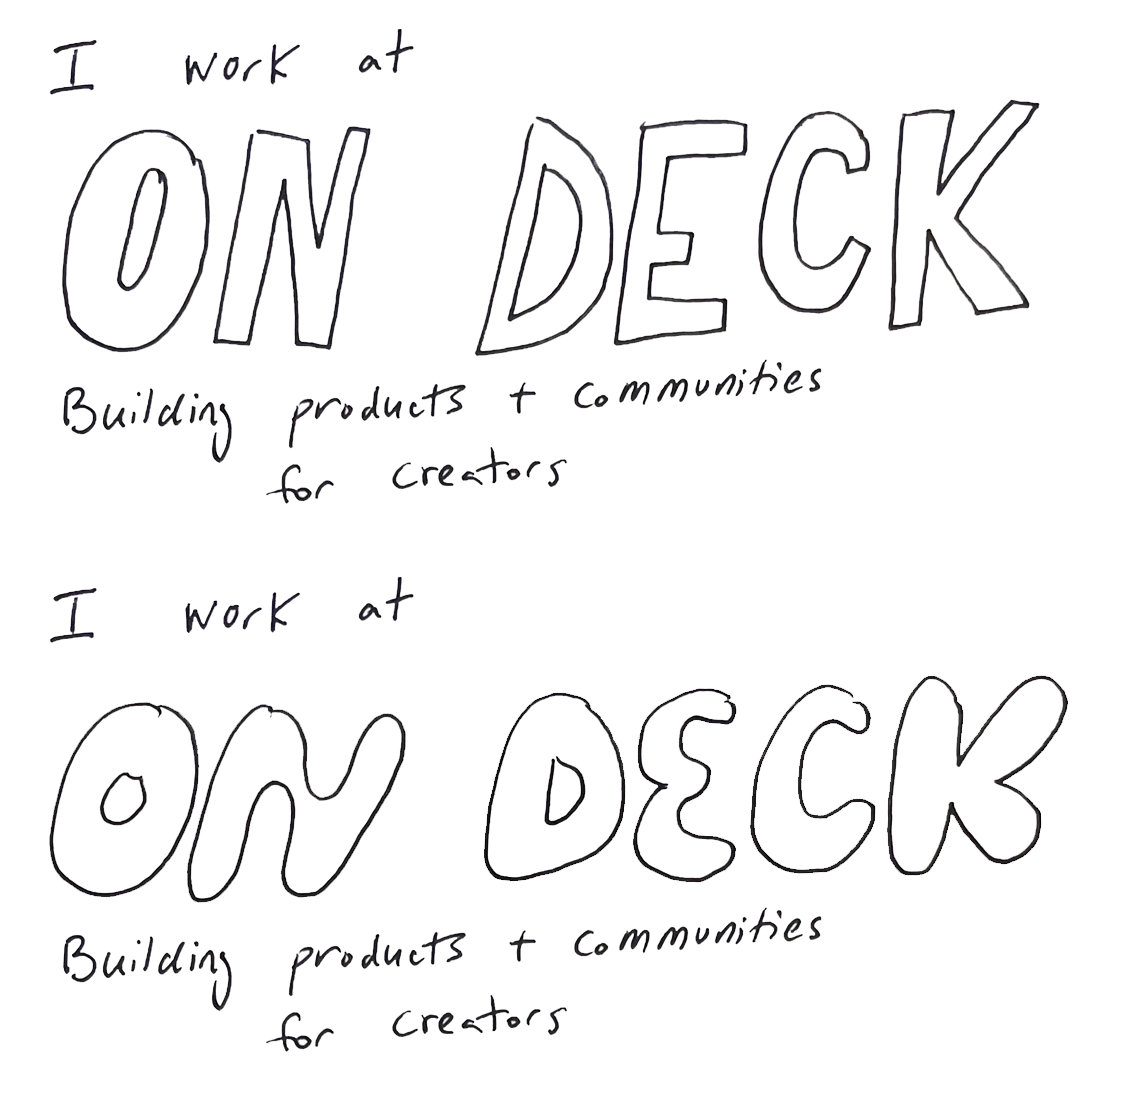 I work at
ON DECK
Building products + communities
for creators
I work at
ON DECK
Building products + communities
for creators